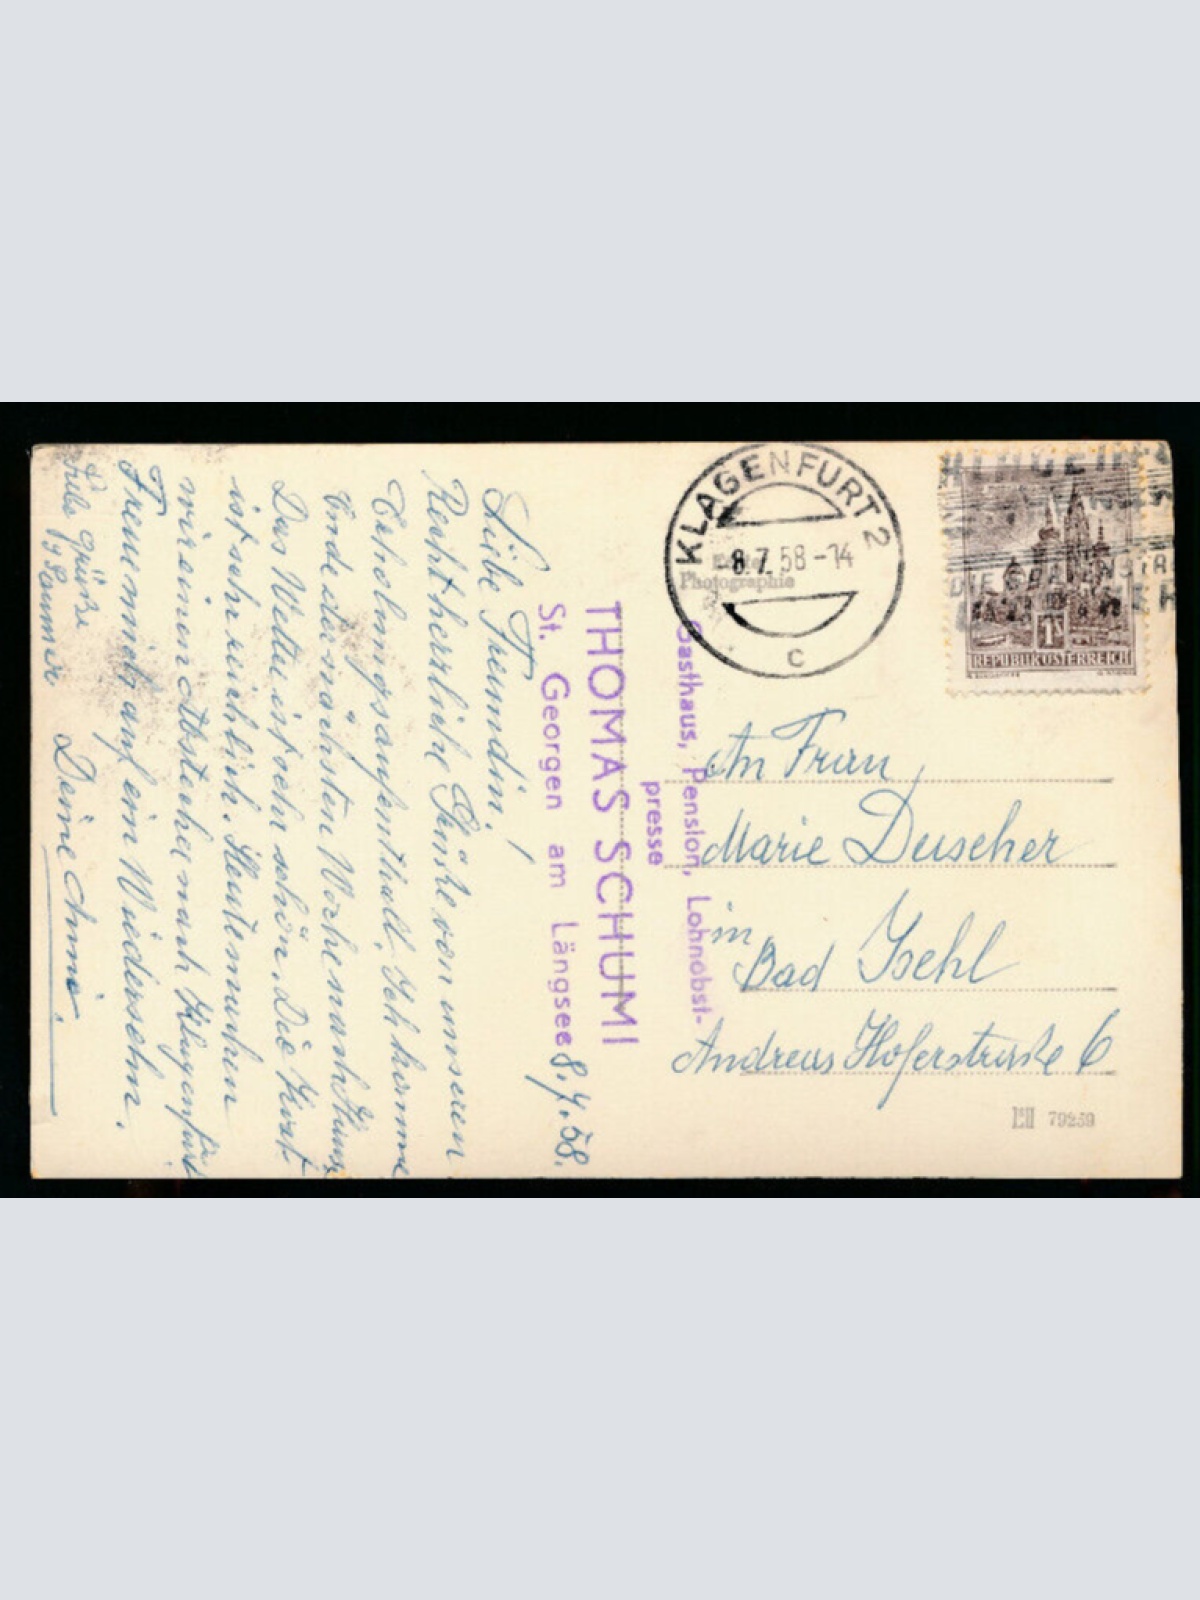 KLAGENFURT 2
8.7.58-14
c
Echte
Photographie
1 S
REPUBLIK ÖSTERREICH
An Frau
Marie Deuscher
in
Bad Ischl
Andreas Hoferstraße 6
79259
Gasthaus, Pension, Lohnobst-
presse
THOMAS SCHUMI
St. Georgen am Längsee
8.7.58.
Liebe Freundin!
Recht herzliche Grüße von unseren
Erholungsaufenthalt. Ich komme
Ende der nächsten Woche nach Hause
Das Wetter ist sehr schön. Die Kost
ist sehr reichlich. Heute machen
wir einen Abstecher nach Klagenfurt
Freue mich auf ein Wiedersehn.
Deine Anna.
Grüße